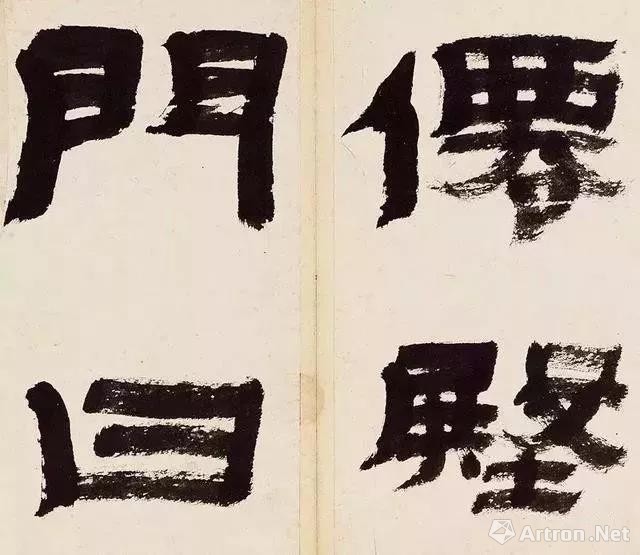 僊壂
門曰
Artron.Net